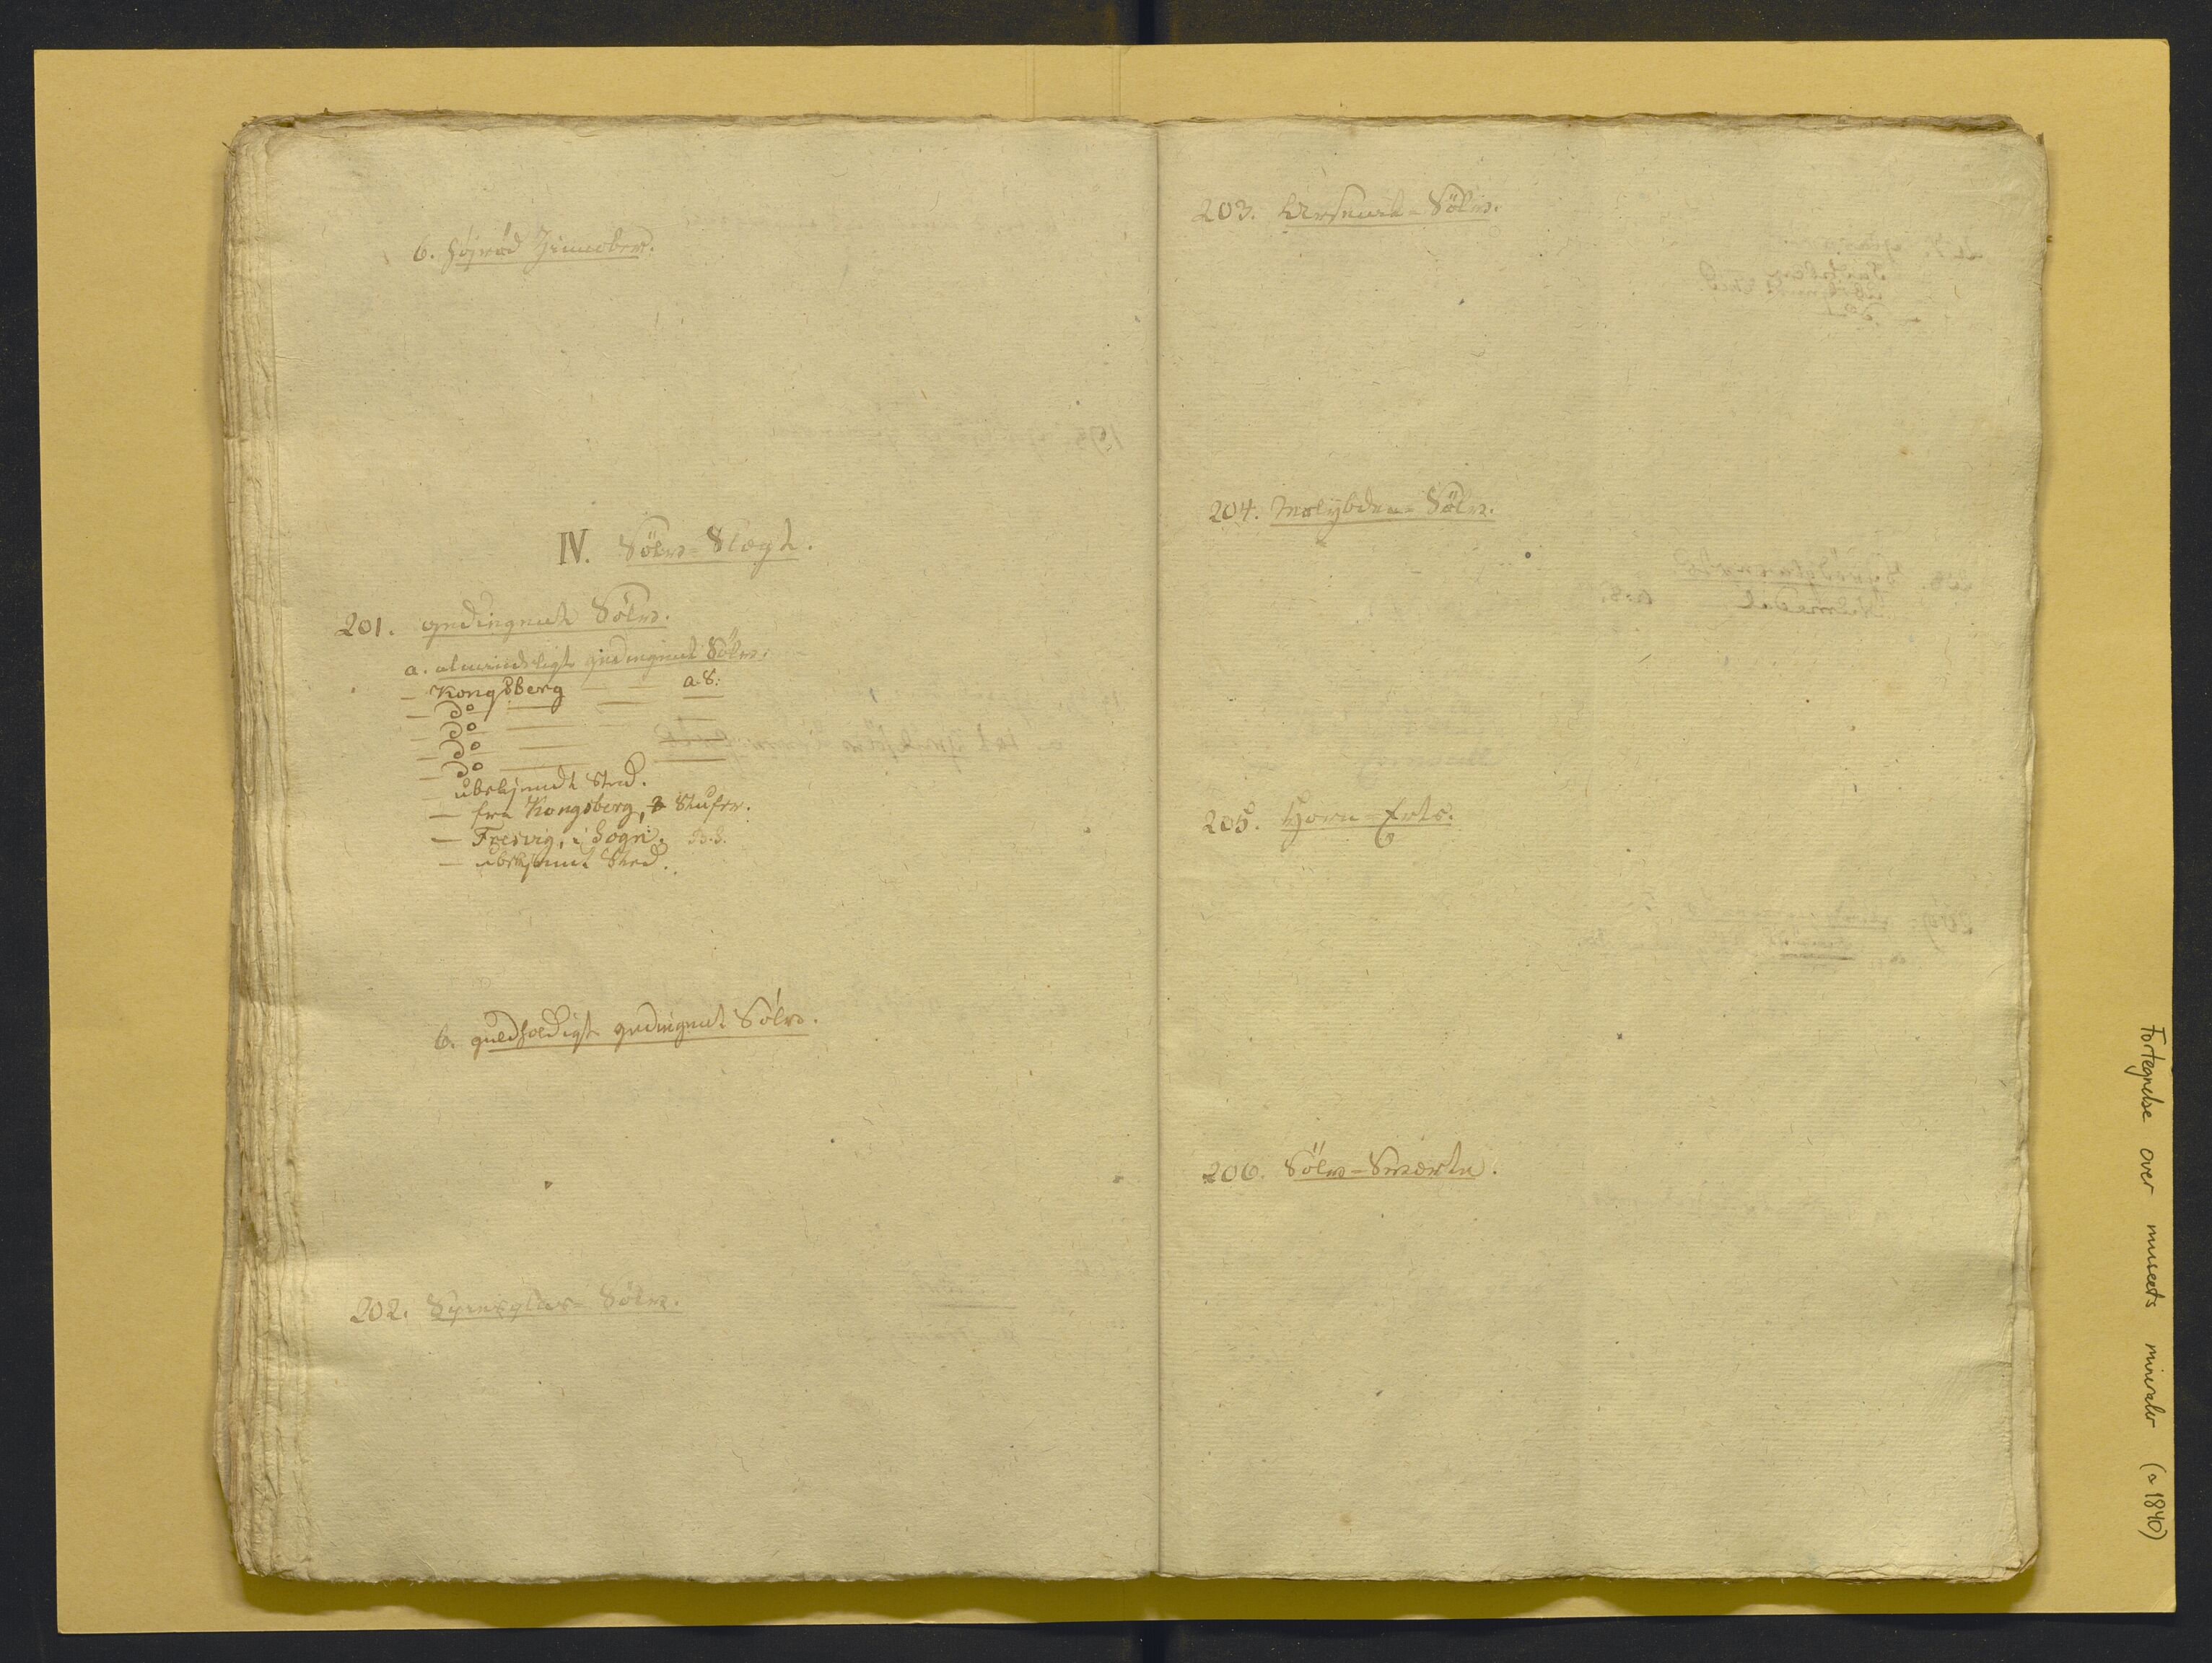 b. höjrød Zinnober.
IV. Sölv-Slægt.
201. gediegent Sölv.
a. almindeligt gediegent Sölv.
— Kongsberg — — a.S:
— do — — —
— do — —
— do — —
— do — —
— ubekjendt Sted.
— fra Kongsberg, Stufer.
— Fresvig, i Sogn. B.S.
— ubekjendt Sted.
b. guldholdigt gediegent Sölv.
202. Spiesglas-Sölv.
203. Arsenik-Sölv.
204. Molybden-Sölv.
205. Horn-Erts.
206. Sölv-Sværte.
Fortegnelse over museets mineraler (a 1840)